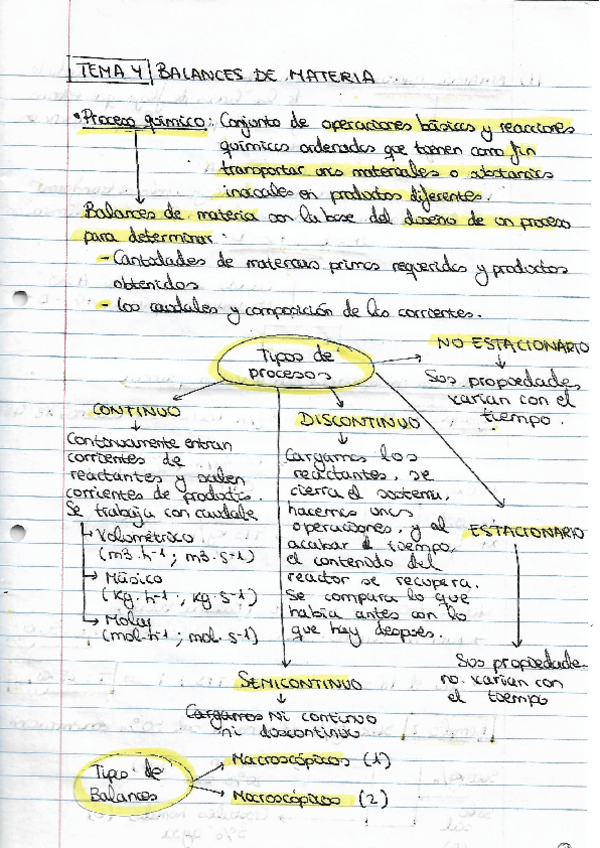 TEMA 4 BALANCES DE MATERIA
• Proceso químico: Conjunto de operaciones básicas y reacciones
químicas ordenadas que tienen como fin
transportar unos materiales o sustancias
iniciales en productos diferentes.
Balances de materia son la base del diseño de un proceso
para determinar:
- Cantidades de materias primas requeridas y productos
obtenidos
- Los caudales y composición de las corrientes.
Tipos de
procesos
NO ESTACIONARIO
Sus propiedades
varían con el
tiempo.
CONTINUO
Continuamente entran
corrientes de
reactantes y salen
corrientes de productos.
Se trabaja con caudale
Volumétrico
(m3·h-1; m3·s-1)
Másico
(Kg·h-1; Kg·s-1)
Molar
(mol·h-1; mol·s-1)
DISCONTINUO
Cargamos los
reactantes, se
cierra el sistema,
hacemos unas
operaciones, y al
acabar el tiempo,
el contenido del
reactor se recupera.
Se compara lo que
había antes con lo
que hay después.
ESTACIONARIO
Sus propiedade
no varían con
el tiempo
SEMICONTINUO
Cargamos Ni continuo
ni discontinuo
Tipo de
Balances
Macroscópicos (1)
Microscópicos (2)